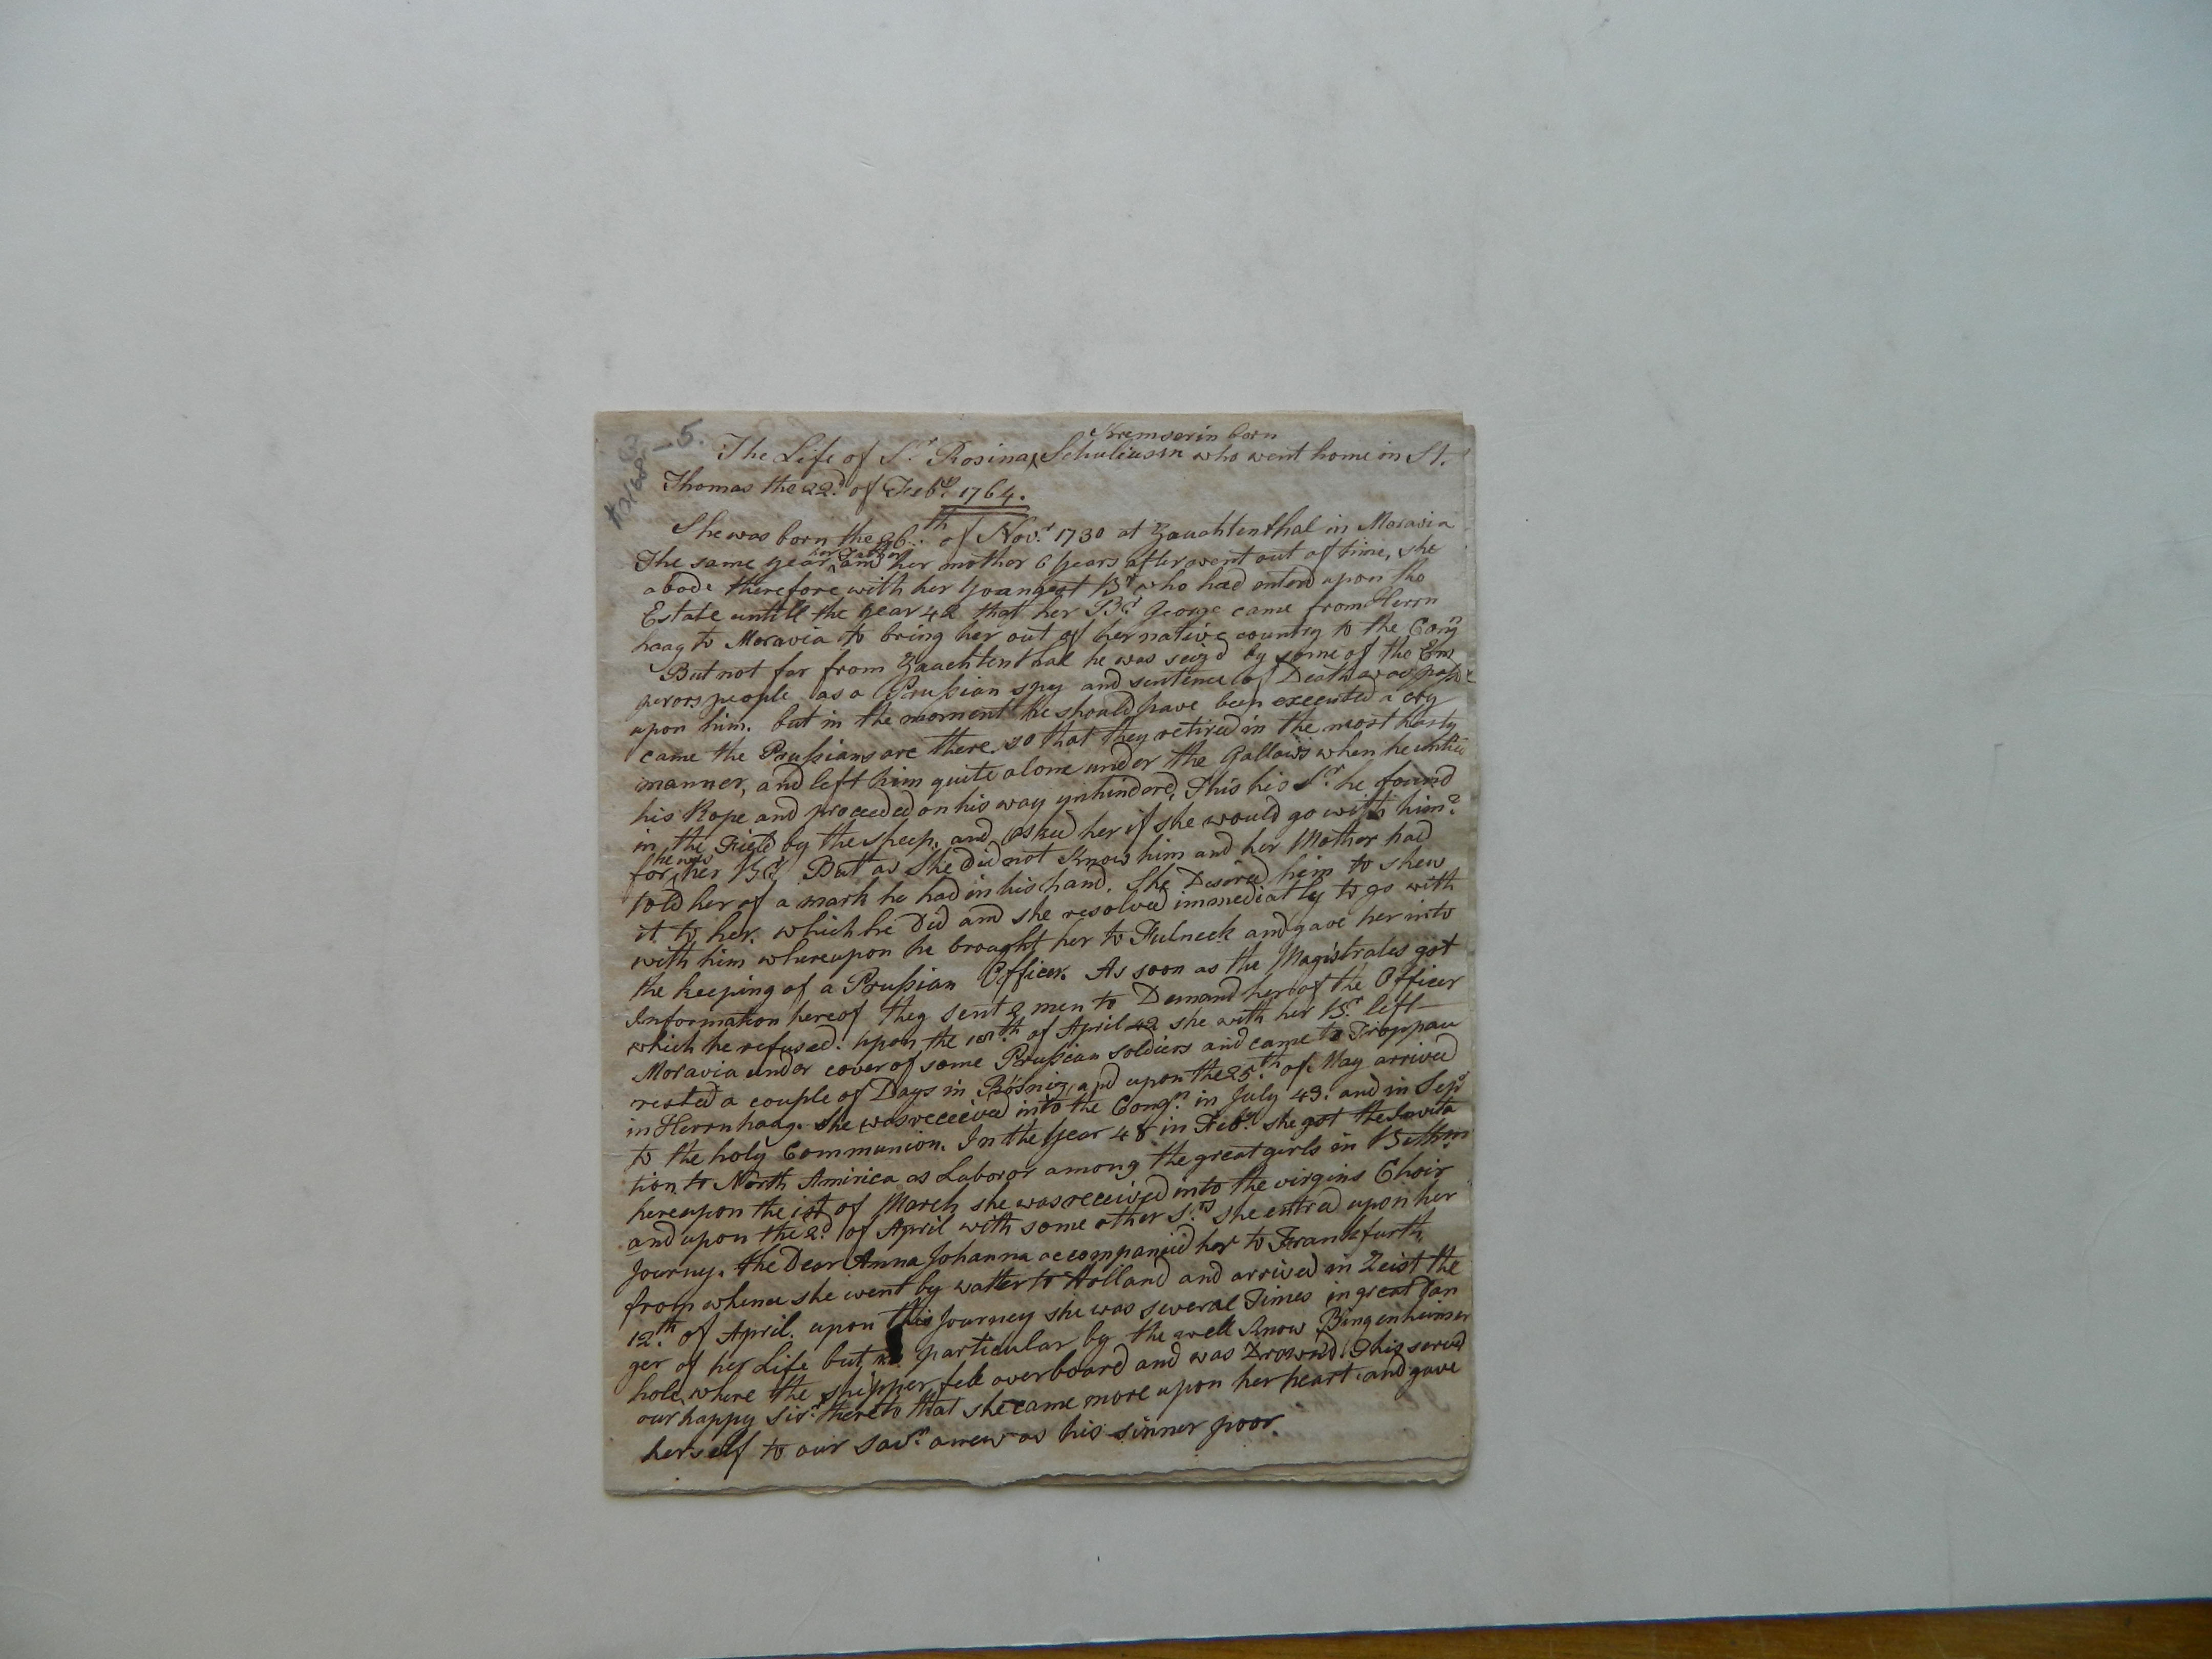 A2168
3
— 5.
Kremserin born
The Life of Sr. Rosina Schuliusin who went home in St.
Thomas the 22d. of Feby. 1764.
She was born the 26th. of Novr. 1730 at Zauchtenthal in Moravia
The same year her Father and her mother 6 years after went out of time, she
abode therefore with her youngest Br who had enterd upon the
Estate untill the year 42 that her Br. George came from Herrn
haag to Moravia to bring her out of her native country to the Congn
But not far from Zauchtenthal he was seizd by some of the Em
perors people as a Prußian spy and sentence of Death was paßd
upon him. but in the moment he should have been executed a cry
came the Prußians are there, so that they retired in the most hasty
manner, and left him quite alone under the Gallows when he untied
his Rope and proceeded on his way unhinderd. This his Sr. he found
in the Field by the sheep, and asked her if she would go with him?
for he was her Br. But as She did not know him and her Mother had
told her of a mark he had in his hand. She Desired him to shew
it to her. which he Did and she resolved immediatly to go with
with him whereupon he brought her to Fulneck and gave her into
the keeping of a Prußian Officer. As soon as the Magistrates got
Information hereof they sent 2 men to Demand her of the Officer
which he refused. upon the 10th. of April 42 she with her Br. left
Moravia under cover of some Prußian soldiers and came to Troppau
rested a couple of Days in Rösniz, and upon the 25th. of May arrived
in Herrnhaag. She was received into the Congn. in July 43. and in Sepr
to the holy Communion. In the Year 48 in Feby. she got the Invita
tion to North Amirica as Laboror among the great girls in Bethm
hereupon the 1st of March she was received into the virgins Choir
and upon the 2d. of April with some other Srs. she entred upon her
Journy. the Dear Anna Johanna accompanied her to Frankfurth,
from whence she went by watter to Holland and arrived in Zeist the
12th. of April. upon this Journey she was several Times in great Dan
ger of her Life but particular by the well know Bingenheimer
hole, where the shipper fell overboard and was Drownd. This served
our happy Sisr. thereto that she came more upon her heart. and gave
herself to our Savr. anew as his sinner poor.